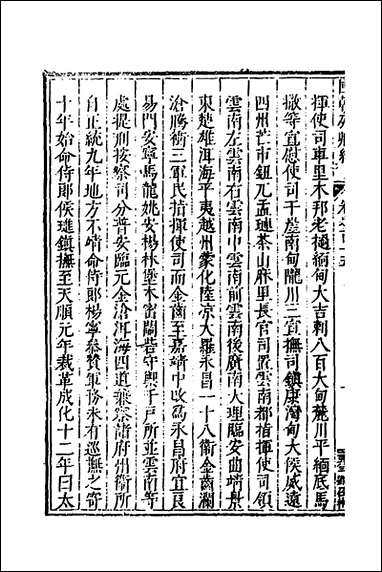 揮使司車里木邦老撾緬甸大古剌八百大甸麓川平緬底馬
撒等宣慰使司干崖南甸隴川三宣撫司鎮康灣甸大侯威遠
四州芒市鈕兀孟璉茶山麻里長官司置雲南都指揮使司領
雲南左雲南右雲南中雲南前雲南後廣南大理臨安曲靖景
東楚雄洱海平夷越州蒙化陸凉大羅永昌一十八衛金齒瀾
滄騰衝三軍民指揮使司而金齒至嘉靖中改爲永昌府宜良
易門安寧馬龍姚安楊林堡木密關
守禦千戶所並雲南等
處提刑按察司分普安臨元金滄洱海四道兼察諸府州衛所
自正統九年地方不靖命侍郎楊寧叅贊軍務未有巡撫之寄
十年始命侍郎侯璡鎮撫至天順元年裁革成化十二年曰太